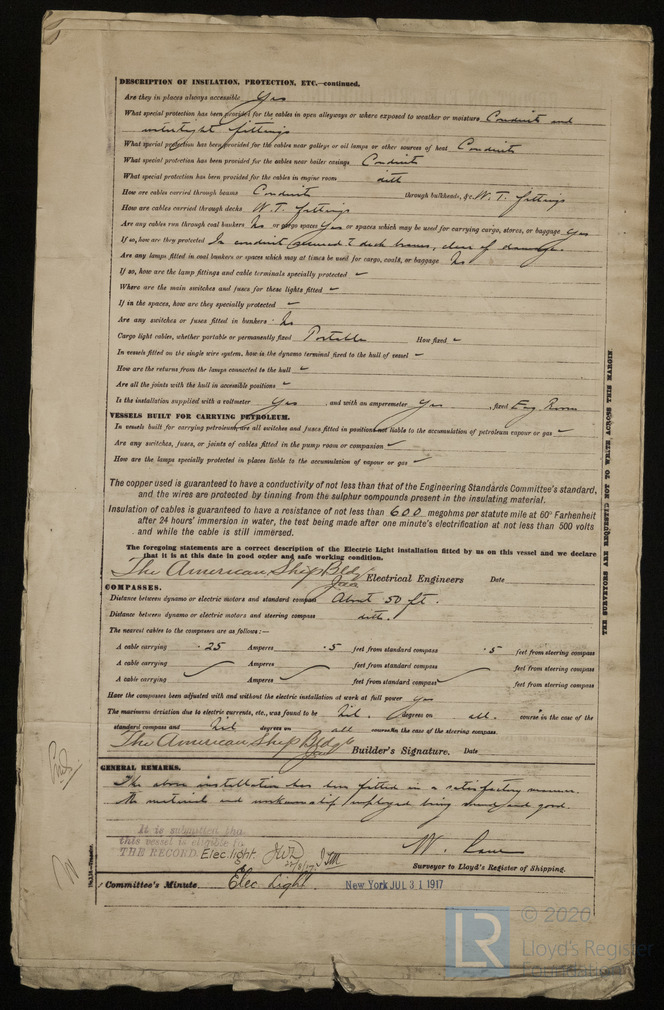 DESCRIPTION OF INSULATION, PROTECTION, ETC.—continued.
Are they in places always accessible Yes
What special protection has been provided for the cables in open alleyways or where exposed to weather or moisture Conduit and
watertight fittings
What special protection has been provided for the cables near galleys or oil lamps or other sources of heat Conduits
What special protection has been provided for the cables near boiler casings Conduits
What special protection has been provided for the cables in engine room ditto
How are cables carried through beams Conduits through bulkheads, &c. W. T. fittings
How are cables carried through decks W. T. fittings
Are any cables run through coal bunkers No or cargo spaces Yes or spaces which may be used for carrying cargo, stores, or baggage Yes
If so, how are they protected In conduit secured to deck beams, clear of damage.
Are any lamps fitted in coal bunkers or spaces which may at times be used for cargo, coals, or baggage No
If so, how are the lamp fittings and cable terminals specially protected —
Where are the main switches and fuses for these lights fitted —
If in the spaces, how are they specially protected —
Are any switches or fuses fitted in bunkers No
Cargo light cables, whether portable or permanently fixed Portable How fixed —
In vessels fitted on the single wire system, how is the dynamo terminal fixed to the hull of vessel —
How are the returns from the lamps connected to the hull —
Are all the joints with the hull in accessible positions —
Is the installation supplied with a voltmeter Yes, and with an amperemeter Yes, fixed Eng. Room
VESSELS BUILT FOR CARRYING PETROLEUM.
In vessels built for carrying petroleum, are all switches and fuses fitted in positions not liable to the accumulation of petroleum vapour or gas —
Are any switches, fuses, or joints of cables fitted in the pump room or companion —
How are the lamps specially protected in places liable to the accumulation of vapour or gas —
The copper used is guaranteed to have a conductivity of not less than that of the Engineering Standards Committee's standard,
and the wires are protected by tinning from the sulphur compounds present in the insulating material.
Insulation of cables is guaranteed to have a resistance of not less than 600 megohms per statute mile at 60° Farhenheit
after 24 hours' immersion in water, the test being made after one minute's electrification at not less than 500 volts
and while the cable is still immersed.
The foregoing statements are a correct description of the Electric Light installation fitted by us on this vessel and we declare
that it is at this date in good order and safe working condition.
The American Ship Bldg Co Electrical Engineers Date
COMPASSES.
Distance between dynamo or electric motors and standard compass About 50 ft.
Distance between dynamo or electric motors and steering compass ditto.
The nearest cables to the compasses are as follows:—
A cable carrying .25 Amperes .5 feet from standard compass .5 feet from steering compass
A cable carrying Amperes feet from standard compass feet from steering compass
A cable carrying Amperes feet from standard compass feet from steering compass
Have the compasses been adjusted with and without the electric installation at work at full power Yes
The maximum deviation due to electric currents, etc., was found to be Nil. degrees on all. course in the case of the
standard compass and Nil degrees on all course in the case of the steering compass.
The American Ship Bldg Co Builder's Signature. Date
GENERAL REMARKS.
The above installation has been fitted in a satisfactory manner.
the materials and workmanship employed being sound and good.
It is submitted that
this vessel is eligible for
THE RECORD. Elec. light.
Surveyor to Lloyd's Register of Shipping.
Committee's Minute. Elec. Light. New York JUL 31 1917
THE SURVEYORS ARE REQUESTED NOT TO WRITE ACROSS THIS MARGIN
© 2020
LR Lloyd's Register
Foundation